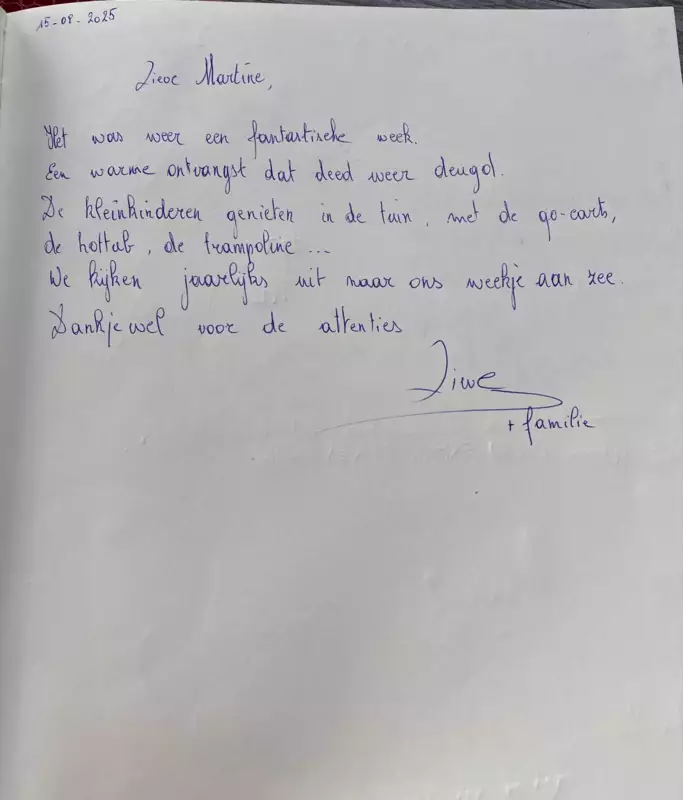 15-08-2025
Lieve Martine,
Het was weer een fantastische week.
Een warme ontvangst dat deed weer deugd.
De kleinkinderen genieten in de tuin, met de go-carts,
de hottub, de trampoline ...
We kijken jaarlijks uit naar ons weekje aan zee.
Dankjewel voor de attenties
+ familie